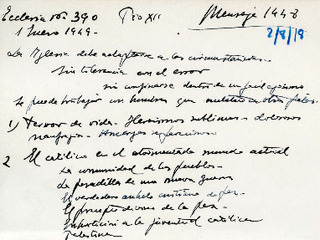 Ecclesia nº 390 Pío XII Mensaje 1948
1 Enero 1949 - 2/8/19
La Iglesia debe adaptarse a las circunstancias.
Sin tolerancia en el error
sin confinarse dentro de un
Se puede trabajar con hombres que
1) Fervor de vida. Heroísmos sublimes - dolorosos
naufragios. Amargas
2 El católico en el atormentado mundo actual
La comunidad de los pueblos.
La pesadilla de una nueva guerra
El verdadero anhelo cristiano de paz.
El precepto divino de la paz.
a la juventud católica
Palestina